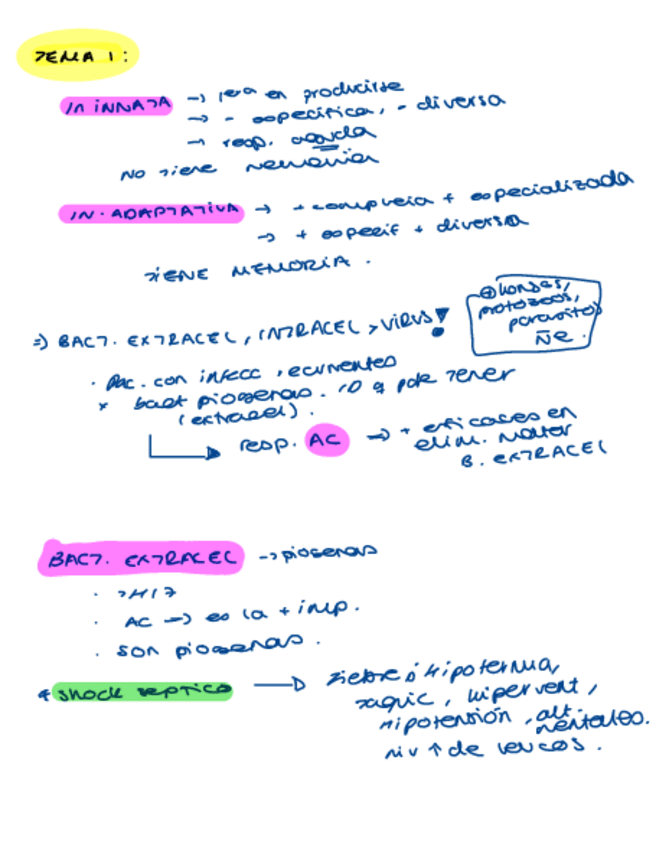 TEMA 1:
IN INNATA → 1era en producirse
→ - específica, - diversa
→ resp. aguda
NO TIENE Memoria
IN. ADAPTATIVA → + compleja + especializada
→ + especif + diversa
TIENE MEMORIA.
⇒ BACT. EXTRACEL, INTRACEL > VIRUS!
⊕ hongos,
protozoos,
parasitos
ÑE.
· Pac. con infecc. recurrentes
* bact piogenas. ID q pde tener
(extracel).
resp. AC → + eficaces en
elim. Matar
B. EXTRACEL
BACT. EXTRACEL → piogenas
· TH17
· AC → es la + imp.
· SON piogenas.
* SHOCK SEPTICO → Fiebre ó Hipotermia,
taquic, hipervent,
Hipotensión, alt.
mentales.
niv ↑ de leucos.